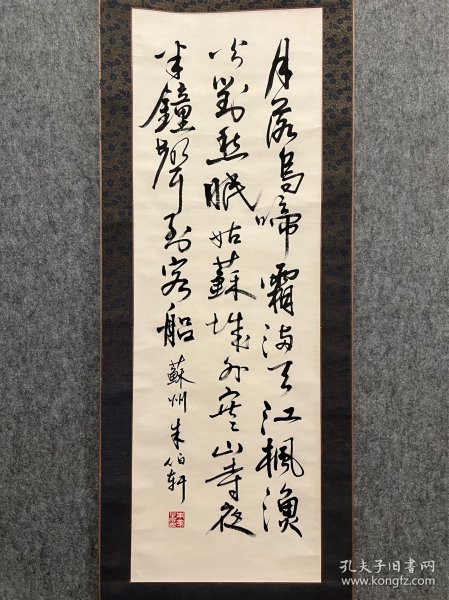 月落烏啼霜滿天江楓漁
火對愁眠姑蘇城外寒山寺夜
半鐘聲到客船
蘇州朱伯軒
孔夫子旧书网
www.kongfz.com